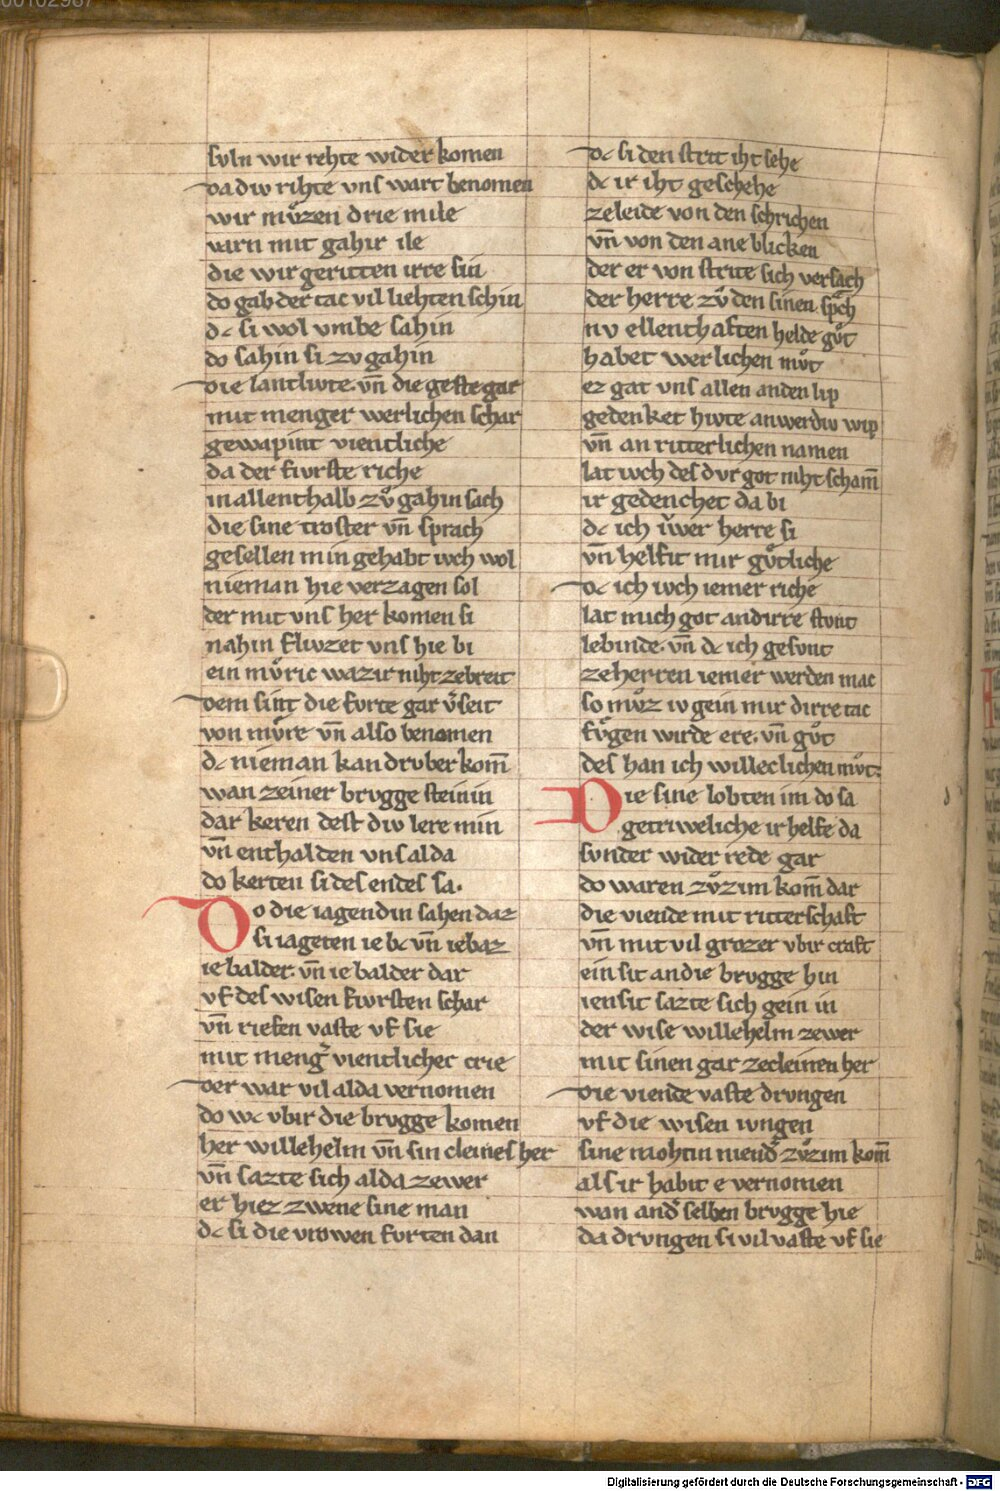 suln wir rehte wider komen
da div rihte vns wart benomen
wir mvͦzen drie mile
varn mit gahir ile
die wir geritten irre sin
do gab der tac vil liehten schin
dc si wol vmbe sahin
do sahin si zv gahin
die lantlivte vn̄ die geste gar
mit menger werlichen schar
gewapint vientliche
da der fivrste riche
in allenthalb zvͦ gahin sach
die sine troster vn̄ sprach
gesellen min gehabt ivch wol
nieman hie verzagen sol
der mit vns her komen si
nahin flivzet vns hie bi
ein mvͦric wazzir niht ze breit
dem sint die fvrte gar v̾seit
von mvͦre vn̄ also benomen
dc nieman kan drvber kom̄
wan zeiner brvgge steinin
dar keren dest div lere min
vn̄ enthalden vns alda
do kerten si des endes sa.
Do die iagendin sahen daz
si iageten ie bc vn̄ ie baz
ie balder vn̄ ie balder dar
vf des wisen fivrsten schar
vn̄ riefen vaste vf sie
mit meng̾ vientlicher crie
der war vil alda vernomen
do wc vbir die brvgge komen
her willehelm vn̄ sin cleines her
vn̄ sazte sich alda zewer
er hiez zwene sine man
dc si die vrowen fvrten dan
dc si den strit iht sehe
dc ir iht geschehe
zeleide von den schrichen
vn̄ von den ane blicken
der er von strite sich versach
der herre zvͦ den sinen sp̄ch
nv ellenthaften helde gvͦt
habet werlichen mvͦt
ez gat vns allen an den lip
gedenket hivte an werdiv wip
vn̄ an ritterlichen namen
lat ivch des dvr got niht scham̄
ir gedenchet da bi
dc ich ivwer herre si
vn̄ helfit mir gvͦtliche
dc ich ivch iemer riche
lat mich got an dirre stvnt
lebinde. vn̄ dc ich gesvnt
zeherren iemer werden mac
so mvͦz iv gein mir dirre tac
fvͤgen wirde ere. vn̄ gvͦt
des han ich willeclichen mvͦt.
Die sine lobten im do sa
getriweliche ir helfe da
svnder wider rede gar
do waren zvͦzim kom̄ dar
die viende mit ritterschaft
vn̄ mit vil grozer vbir craft
ein sit an die brvgge hin
iensit sazte sich gein in
der wise willehelm zewer
mit sinen gar zecleinen her
die viende vaste drvngen
vf die wisen ivngen
sine mohtin niend̾ zvͦzim kom̄
als ir habit e vernomen
wan and̾ selben brvgge hie
da drvngen si vil vaste vf sie
Digitalisierung gefördert durch die Deutsche Forschungsgemeinschaft - DFG